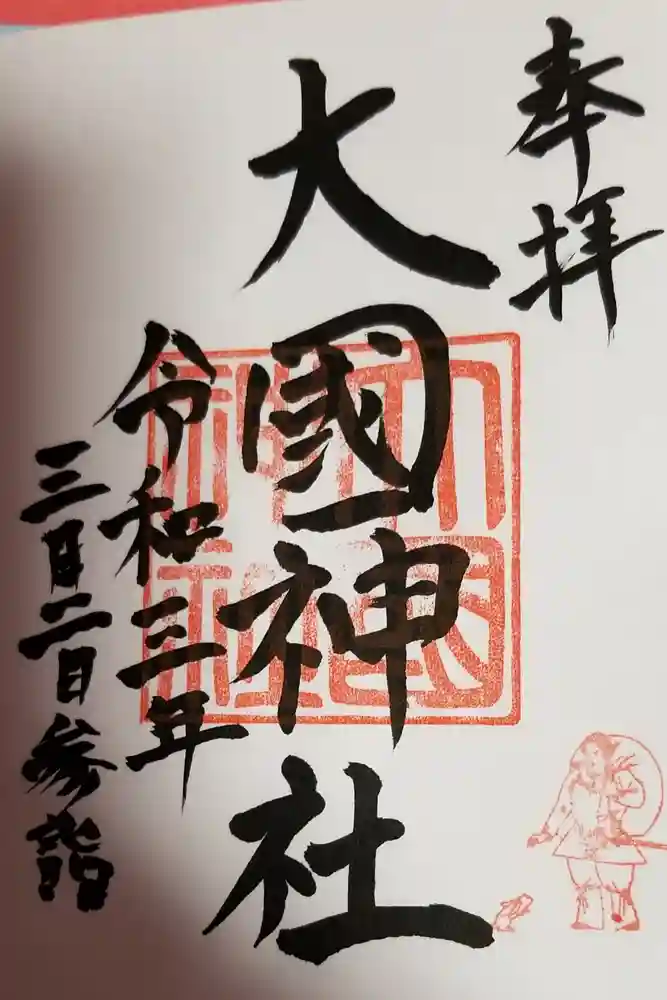 奉拝
大國神社
大國神社
令和三年
三月二日参詣